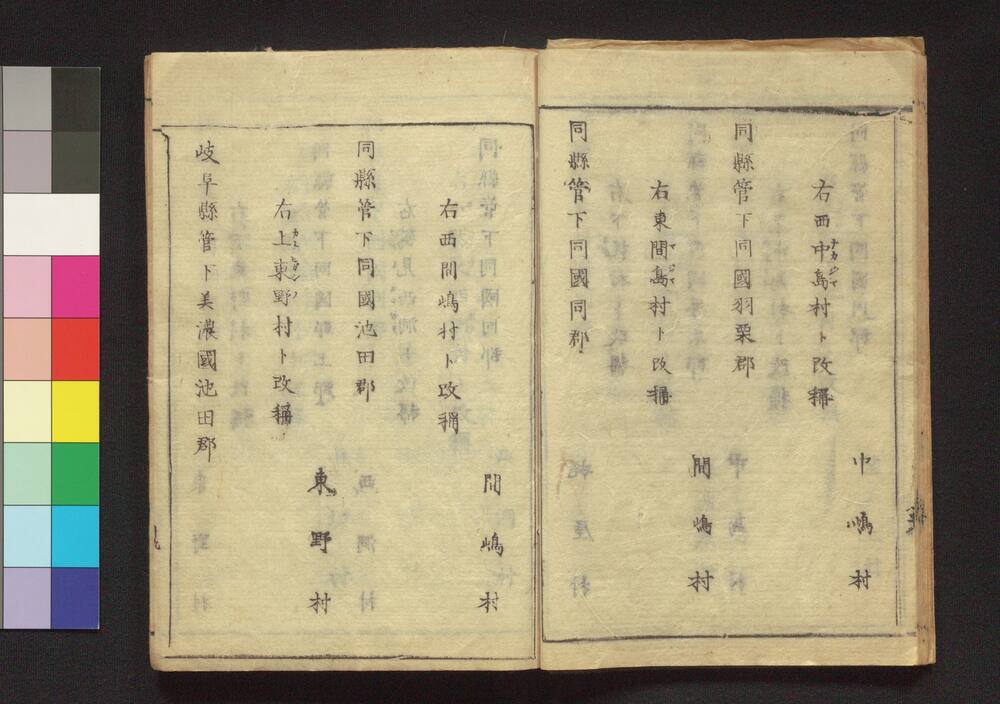 中嶋村
右西中島村ト改稱
ナカジマ
同縣管下同國羽栗郡
間嶋村
右東間島村ト改稱
マジマ
同縣管下同國同郡
間嶋村
右西間嶋村ト改稱
同縣管下同國池田郡
東野村
右上東野村ト改稱
岐阜縣管下美濃國池田郡